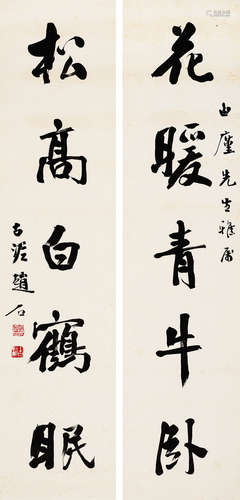 花暖青牛卧
由廑先生雅属
松高白鶴眠
古泥趙石